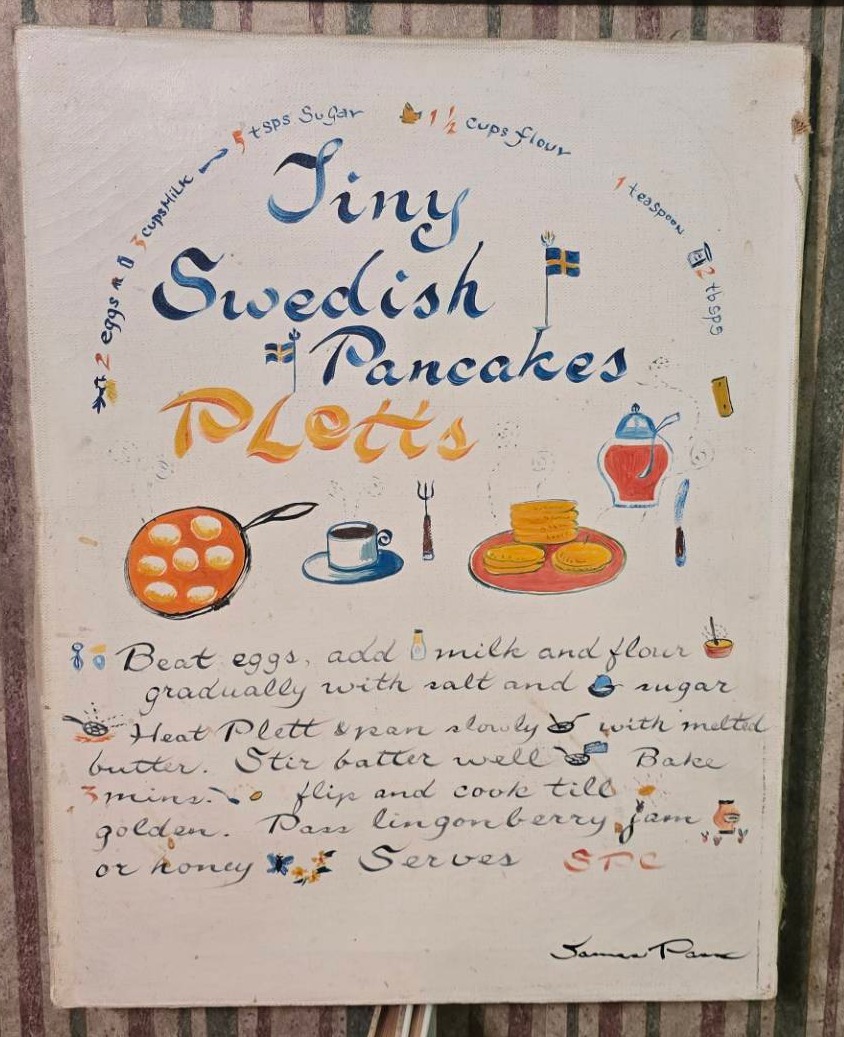 2 eggs
3 cups Milk
5 tsps Sugar
1 1/2 cups flour
1 teaspoon
2 tbsps
Tiny
Swedish
Pancakes
PLetts
Beat eggs, add milk and flour
gradually with salt and sugar
Heat Plett & pan slowly with melted
butter. Stir batter well Bake
3 mins. flip and cook till
golden. Pass lingonberry jam
or honey Serves
James